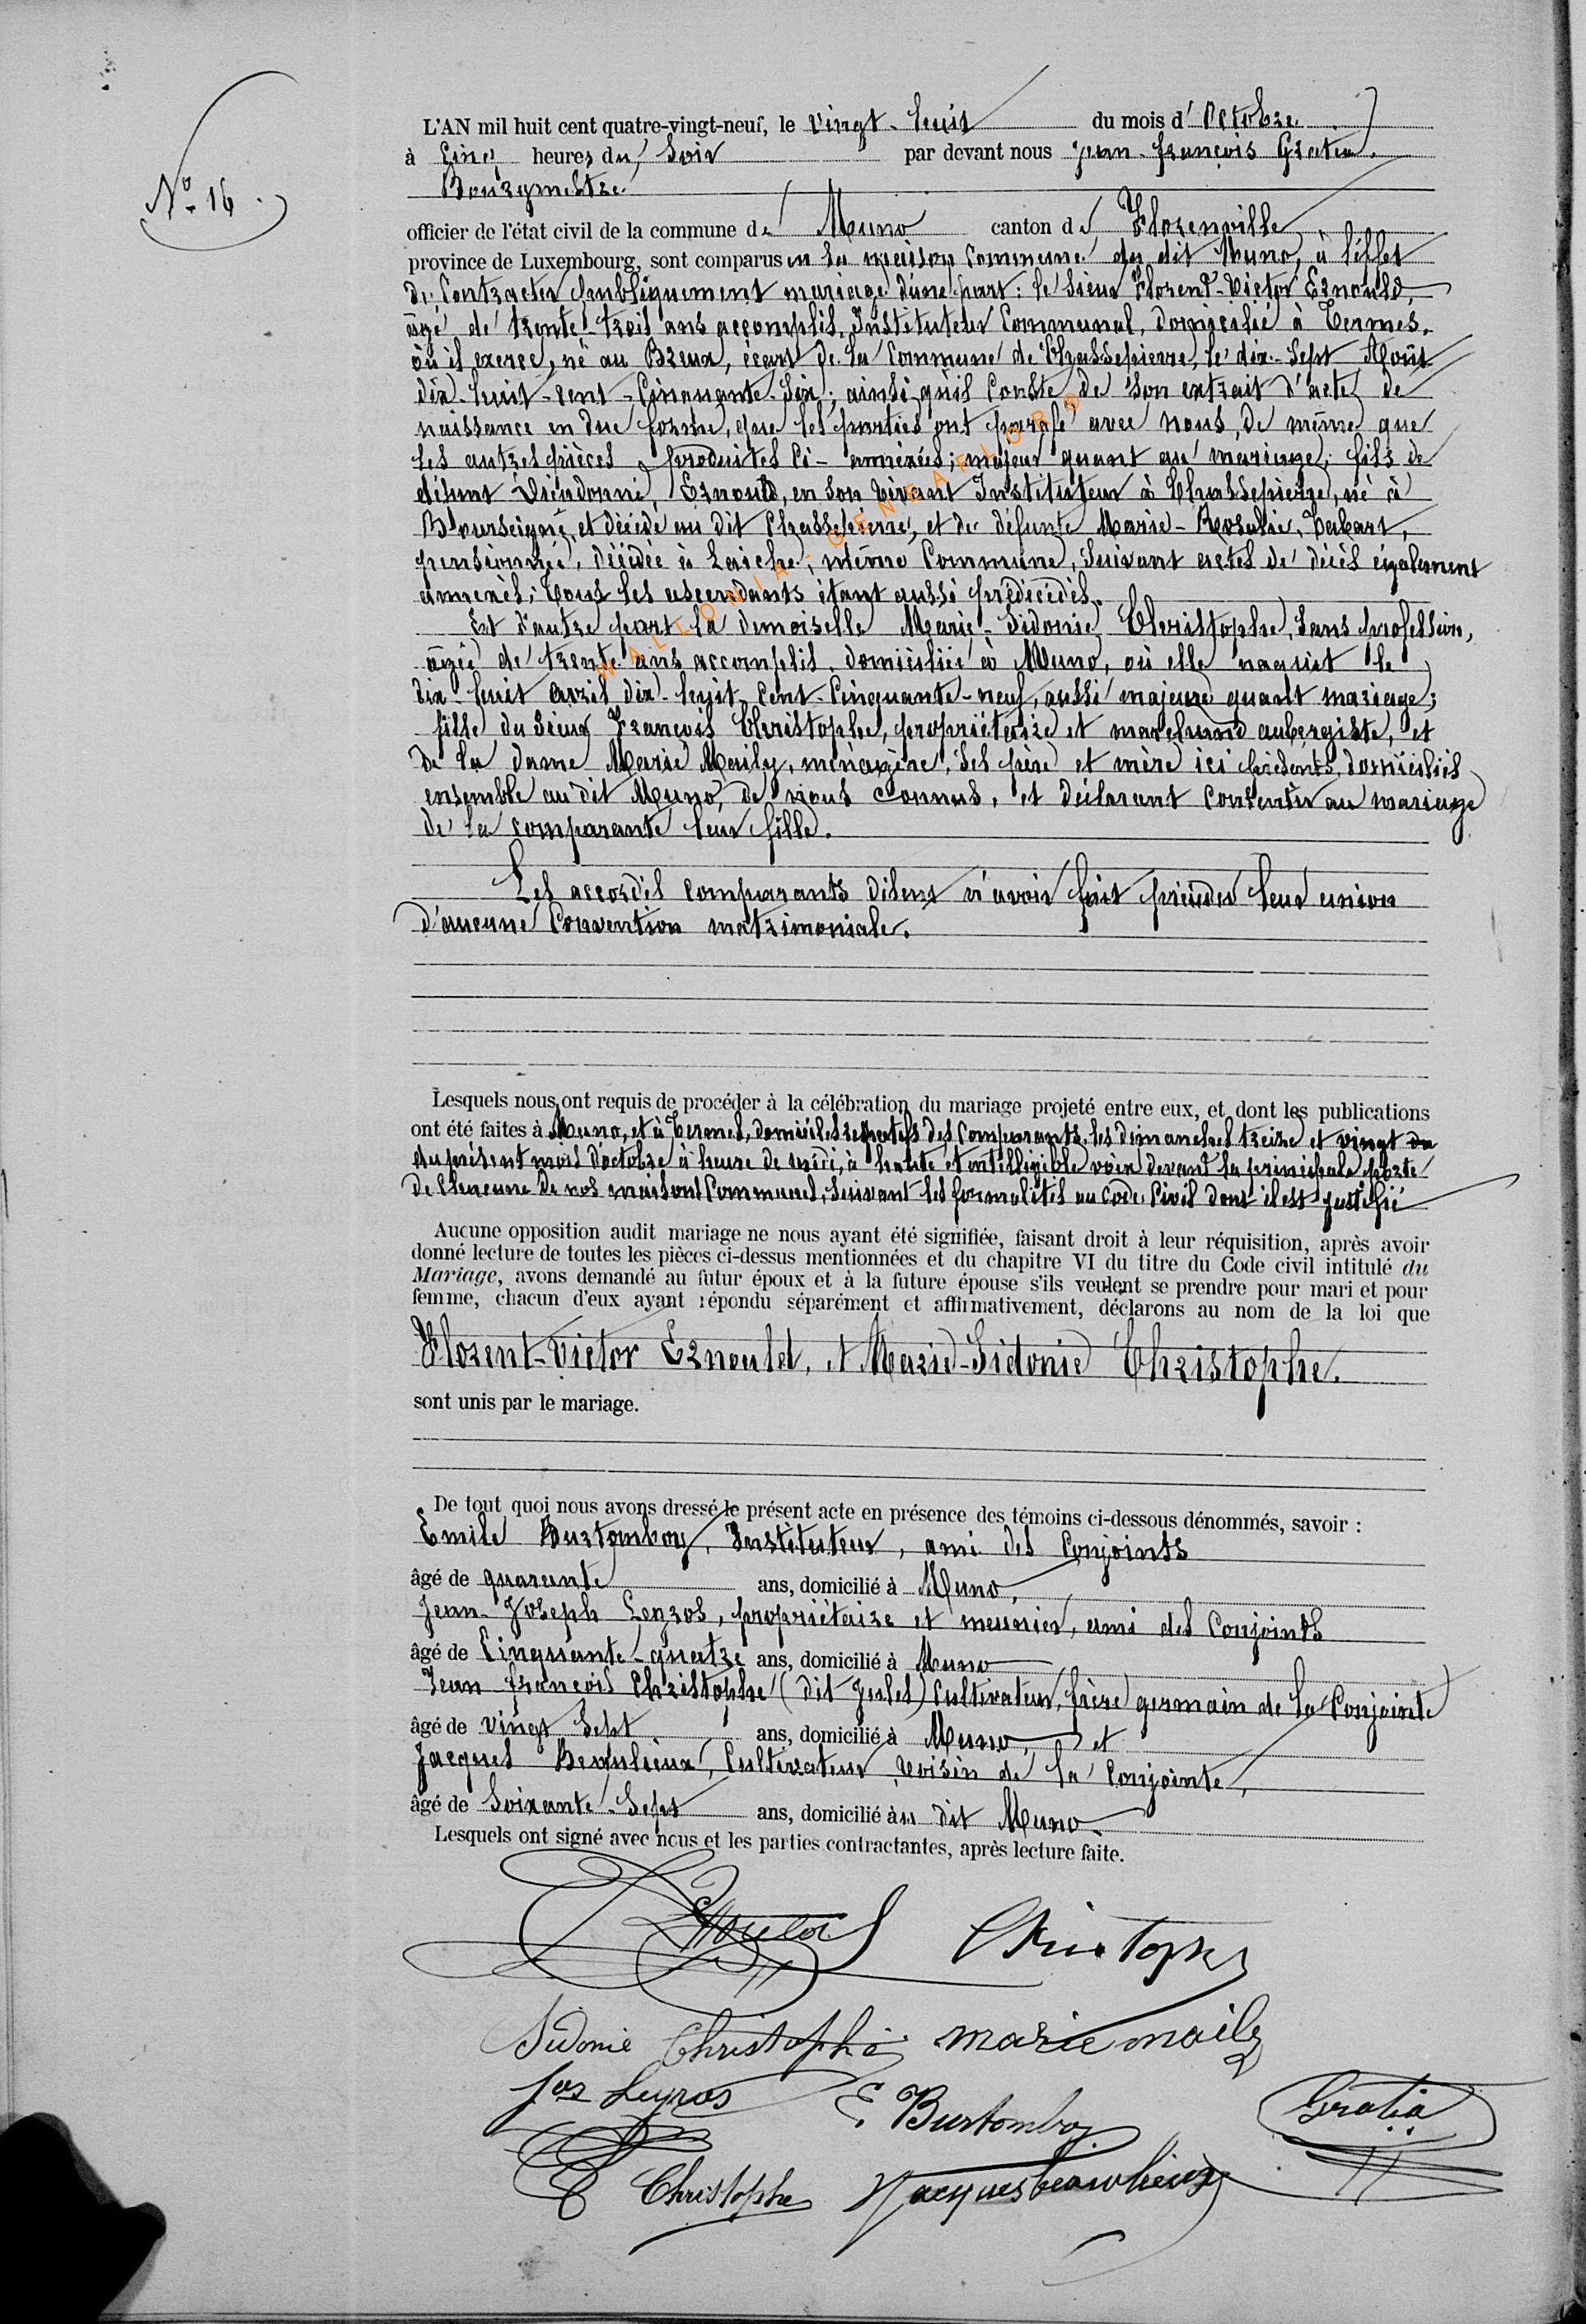 N° 16.
L'AN mil huit cent quatre-vingt-neuf, le vingt-huit du mois d'Octobre
à Cinq heures du soir par devant nous Jean-François Gratia.
Bourgmestre
officier de l'état civil de la commune de Muno canton de Florenville
province de Luxembourg, sont comparus en la maison Commune du dit Muno, à l'effet
de Contracter publiquement mariage d'une part: le sieur Florent-Victor Ernould,
âgé de trente-trois ans accomplis, Instituteur Communal, domicilié à Termes,
où il exerce, né au Breux, écart de la Commune de Chassepierre, le dix-sept Août
dix-huit-cent-Cinquante-six; ainsi qu'il Conste de son extrait d'acte de
naissance en due forme, que les parties ont parafé avec nous, de même que
les autres pièces produites Ci-annexées; majeur quant au mariage; fils de
défunt Dieudonné Ernould, en son vivant Instituteur à Chassepierre, né à
Bourseigne et décédé au dit Chassepierre, et de défunte Marie-Rosalie Tabart,
pensionnée, décédée à Laiche, même Commune, suivant actes de décès également
annexés; tous les ascendants étant aussi prédécédés.
Et d'autre part la demoiselle Marie-Sidonie Christophe, sans profession,
âgée de trente ans accomplis, domiciliée à Muno, où elle naquit le
dix-huit avril dix-huit-Cent-Cinquante-neuf, aussi majeure quant mariage;
fille du sieur François Christophe, propriétaire et marchand aubergiste, et
de la dame Marie Maily, ménagère, ses père et mère ici présents, domiciliés
ensemble au dit Muno, de nous connus, et déclarant consentir au mariage
de la comparante leur fille.
Les accordés comparants disent n'avoir fait précéder leur union
d'aucune Convention matrimoniale.
Lesquels nous ont requis de procéder à la célébration du mariage projeté entre eux, et dont les publications
ont été faites à Muno, et à Termes, domiciles respectifs des Comparants, les dimanches treize et vingt du
du présent mois d'octobre à heure de midi, à haute et intelligible voix devant la principale porte
de Chacune de nos maisons Communes, suivant les formalités au Code Civil dont il est justifié
Aucune opposition audit mariage ne nous ayant été signifiée, faisant droit à leur réquisition, après avoir
donné lecture de toutes les pièces ci-dessus mentionnées et du chapitre VI du titre du Code civil intitulé du
Mariage, avons demandé au futur époux et à la future épouse s'ils veulent se prendre pour mari et pour
femme, chacun d'eux ayant répondu séparément et affirmativement, déclarons au nom de la loi que
Florent-Victor Ernould, et Marie-Sidonie Christophe.
sont unis par le mariage.
De tout quoi nous avons dressé le présent acte en présence des témoins ci-dessous dénommés, savoir :
Emile Burtomboy, Instituteur, ami des Conjoints
âgé de quarante ans, domicilié à Muno,
Jean-Joseph Legros, propriétaire et meunier, ami des Conjoints
âgé de Cinquante-quatre ans, domicilié à Muno
Jean-François Christophe (dit Jules) Cultivateur, frère germain de la Conjointe
âgé de vingt sept ans, domicilié à Muno, et
Jacques Beaulieux, Cultivateur, voisin de la Conjointe,
âgé de soixante-sept ans, domicilié au dit Muno.
Lesquels ont signé avec nous et les parties contractantes, après lecture faite.
Ernould Christophe
Sidonie Christophe marie maily
Jos Legros E. Burtomboy Gratia
Christophe Jacques beaulieux
WALLONIA-GENEAFLOR©